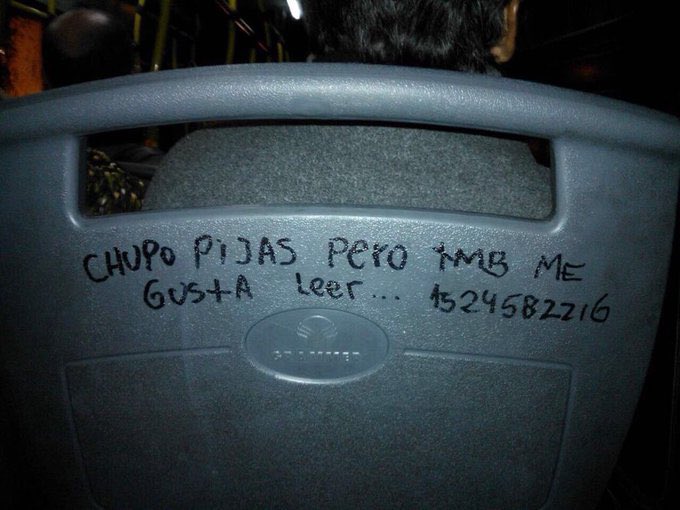 CHUPO PIJAS PerO tMB ME
GUStA Leer... 1524582216
GRAMMER